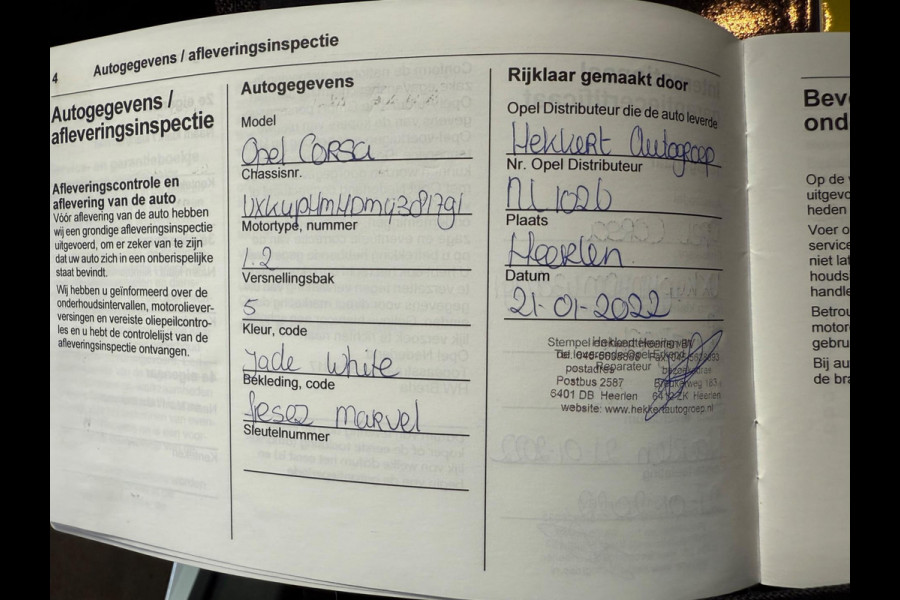 4
Autogegevens / afleveringsinspectie
Autogegevens /
afleveringsinspectie
Afleveringscontrole en
aflevering van de auto
Vóór aflevering van de auto hebben
wij een grondige afleveringsinspectie
uitgevoerd, om er zeker van te zijn
dat uw auto zich in een onberispelijke
staat bevindt.
Wij hebben u geïnformeerd over de
onderhoudsintervallen, motoroliever-
versingen en vereiste oliepeilcontro-
les en u hebt de controlelijst van de
afleveringsinspectie ontvangen.
Autogegevens
Model
Opel Corsa
Chassisnr.
Motortype, nummer
1.2
Versnellingsbak
5
Kleur, code
Jade White
Bekleding, code
marvel
Sleutelnummer
Rijklaar gemaakt door
Opel Distributeur die de auto leverde
Hekkert Autogroep
Nr. Opel Distributeur
NL 1026
Plaats
Heerlen
Datum
21-01-2022
Stempel
Reparateur
postadres
Postbus 2587
6401 DB Heerlen 6412 ZK Heerlen
website: www.hekkertautogroep.nl
Op de
Voer
service
niet lat
houds
handle
Betrou
motor
gebru
Bij au
de bra